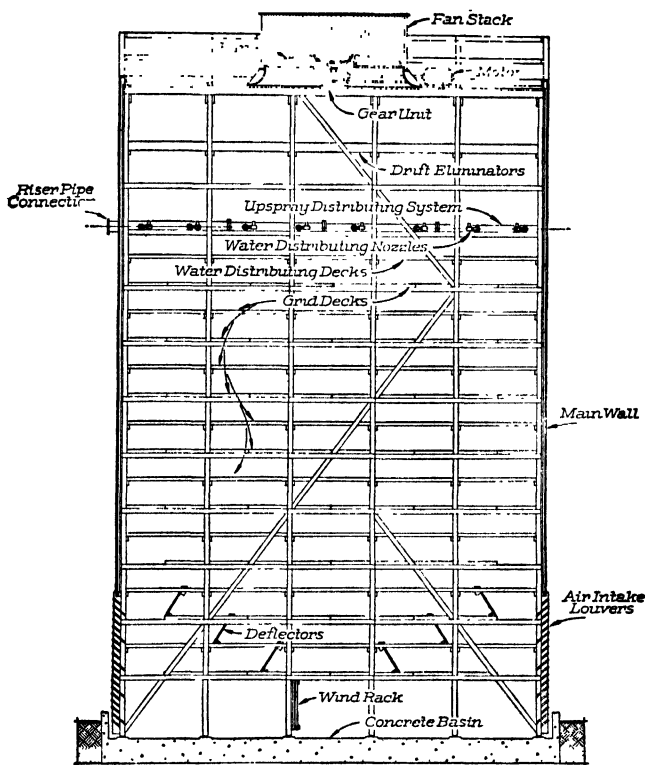 Fan Stack
Motor
Gear Unit
Drift Eliminators
Riser Pipe
Connection
Upspray Distributing System
Water Distributing Nozzles
Water Distributing Decks
Grid Decks
Main Wall
Air Intake
Louvers
Deflectors
Wind Rack
Concrete Basin